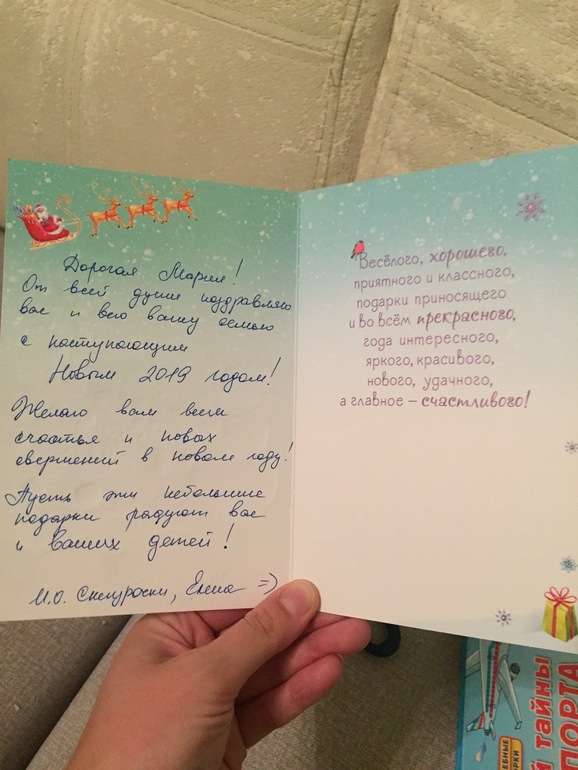 Дорогая Мария!
От всей души поздравляю
вас и всю вашу семью
с наступающим
Новым 2019 годом!
Желаю вам всем
счастья и новых
свершений в новом году!
Пусть эти небольшие
подарки радуют вас
и Ваших детей!
И.О. Снегурочки, Елена =)
Весёлого, хорошего,
приятного и классного,
подарки приносящего
и во всём прекрасного,
года интересного,
яркого, красивого,
нового, удачного,
а главное – счастливого!
Й ТАЙНЫ
ПОРТА